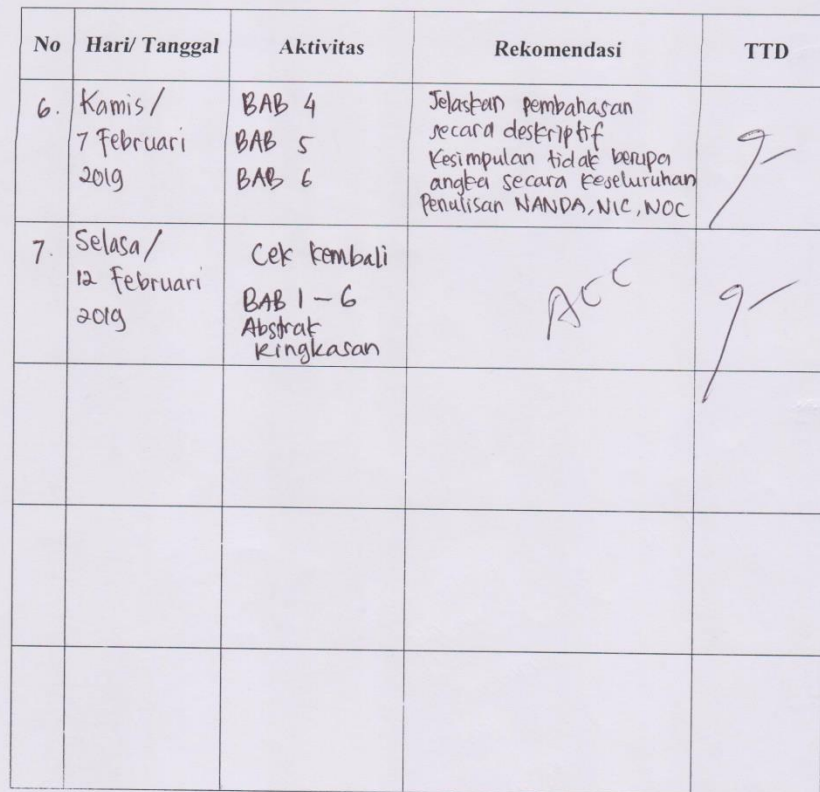 No Hari/ Tanggal Aktivitas Rekomendasi TTD
6. Kamis /
7 Februari
2019
BAB 4
BAB 5
BAB 6
Jelaskan pembahasan
secara deskriptif
Kesimpulan tidak berupa
angka secara keseluruhan
Penulisan NANDA, NIC, NOC
7. Selasa /
12 Februari
2019
Cek kembali
BAB 1 - 6
Abstrak
Ringkasan
ACC